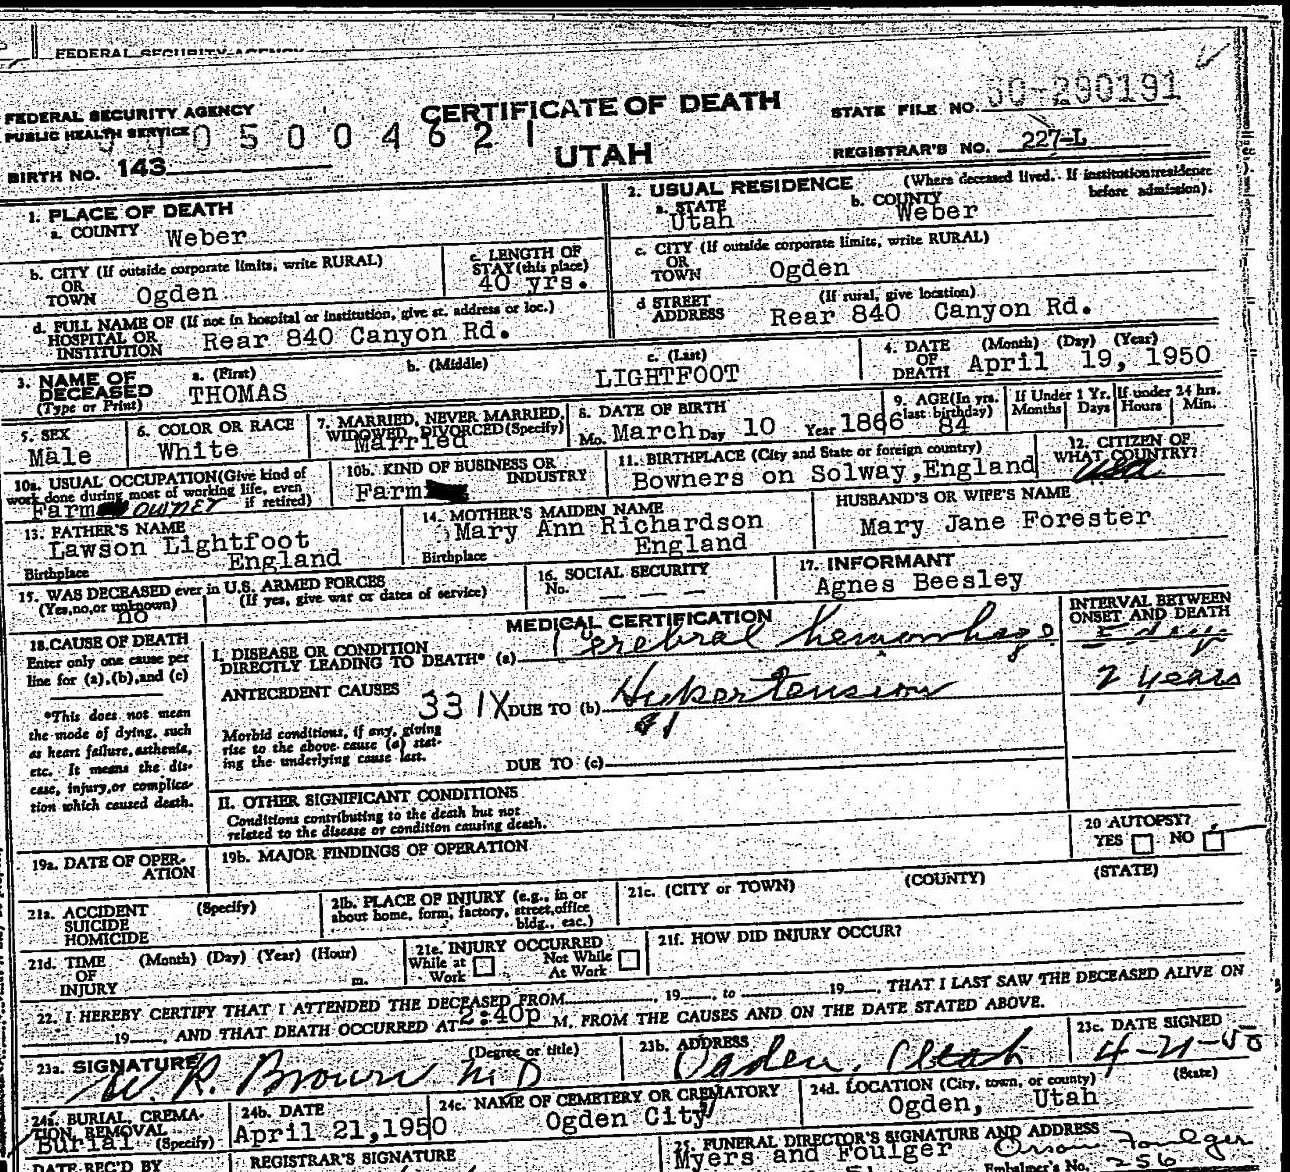 FEDERAL SECURITY AGENCY
FEDERAL SECURITY AGENCY
PUBLIC HEALTH SERVICE
0 0 5 0 0 4 6 2 1
BIRTH NO. 143
CERTIFICATE OF DEATH
UTAH
STATE FILE NO. 50-290191
REGISTRAR'S NO. 227-L
1. PLACE OF DEATH
a. COUNTY Weber
2. USUAL RESIDENCE (Where deceased lived. If institution: residence before admission).
a. STATE Utah
b. COUNTY Weber
b. CITY (If outside corporate limits, write RURAL)
OR
TOWN Ogden
c. LENGTH OF
STAY (this place)
40 yrs.
c. CITY (If outside corporate limits, write RURAL)
OR
TOWN Ogden
d. FULL NAME OF (If not in hospital or institution, give st. address or loc.)
HOSPITAL OR
INSTITUTION Rear 840 Canyon Rd.
d STREET (If rural, give location)
ADDRESS Rear 840 Canyon Rd.
3. NAME OF
DECEASED
(Type or Print)
a. (First)
THOMAS
b. (Middle)
c. (Last)
LIGHTFOOT
4. DATE (Month) (Day) (Year)
OF
DEATH April 19, 1950
5. SEX
Male
6. COLOR OR RACE
White
7. MARRIED, NEVER MARRIED,
WIDOWED, DIVORCED (Specify)
Married
8. DATE OF BIRTH
Mo. March Day 10 Year 1866
9. AGE (In yrs.
last birthday)
84
If Under 1 Yr.
Months Days
If under 24 hrs.
Hours Min.
10a. USUAL OCCUPATION (Give kind of
work done during most of working life, even
if retired)
Farm owner
10b. KIND OF BUSINESS OR
INDUSTRY
Farm
11. BIRTHPLACE (City and State or foreign country)
Bowners on Solway, England
12. CITIZEN OF
WHAT COUNTRY?
USA
13. FATHER'S NAME
Lawson Lightfoot
Birthplace England
14. MOTHER'S MAIDEN NAME
Mary Ann Richardson
Birthplace England
HUSBAND'S OR WIFE'S NAME
Mary Jane Forester
15. WAS DECEASED ever in U.S. ARMED FORCES
(Yes, no, or unknown) (If yes, give war or dates of service)
no
16. SOCIAL SECURITY
No. — — —
17. INFORMANT
Agnes Beesley
18. CAUSE OF DEATH
Enter only one cause per
line for (a), (b), and (c)
*This does not mean
the mode of dying, such
as heart failure, asthenia,
etc. It means the dis-
ease, injury, or complica-
tion which caused death.
MEDICAL CERTIFICATION
INTERVAL BETWEEN
ONSET AND DEATH
I. DISEASE OR CONDITION
DIRECTLY LEADING TO DEATH* (a) Cerebral hemorrhage
days
ANTECEDENT CAUSES
331X DUE TO (b) Hypertension
2 years
Morbid conditions, if any, giving
rise to the above cause (a) stat-
ing the underlying cause last.
DUE TO (c)
II. OTHER SIGNIFICANT CONDITIONS
Conditions contributing to the death but not
related to the disease or condition causing death.
19a. DATE OF OPER-
ATION
19b. MAJOR FINDINGS OF OPERATION
20 AUTOPSY?
YES NO
21a. ACCIDENT (Specify)
SUICIDE
HOMICIDE
21b. PLACE OF INJURY (e.g., in or
about home, form, factory, street, office
bldg., eac.)
21c. (CITY or TOWN) (COUNTY) (STATE)
21d. TIME (Month) (Day) (Year) (Hour)
OF
INJURY m.
21e. INJURY OCCURRED
While at Work
Not While At Work
21f. HOW DID INJURY OCCUR?
22. I HEREBY CERTIFY THAT I ATTENDED THE DECEASED FROM , 19 , to 19 , THAT I LAST SAW THE DECEASED ALIVE ON
19 , AND THAT DEATH OCCURRED AT 2:40p M, FROM THE CAUSES AND ON THE DATE STATED ABOVE.
23a. SIGNATURE (Degree or title)
W. R. Brown M D
23b. ADDRESS
Ogden, Utah
23c. DATE SIGNED
4-21-50
24a. BURIAL, CREMA-
TION, REMOVAL
Burial (Specify)
24b. DATE
April 21, 1950
24c. NAME OF CEMETERY OR CREMATORY
Ogden City
24d. LOCATION (City, town, or county) (State)
Ogden, Utah
DATE REC'D BY
REGISTRAR'S SIGNATURE
25. FUNERAL DIRECTOR'S SIGNATURE AND ADDRESS
Myers and Foulger Orson Foulger
Embalmer's No. 256